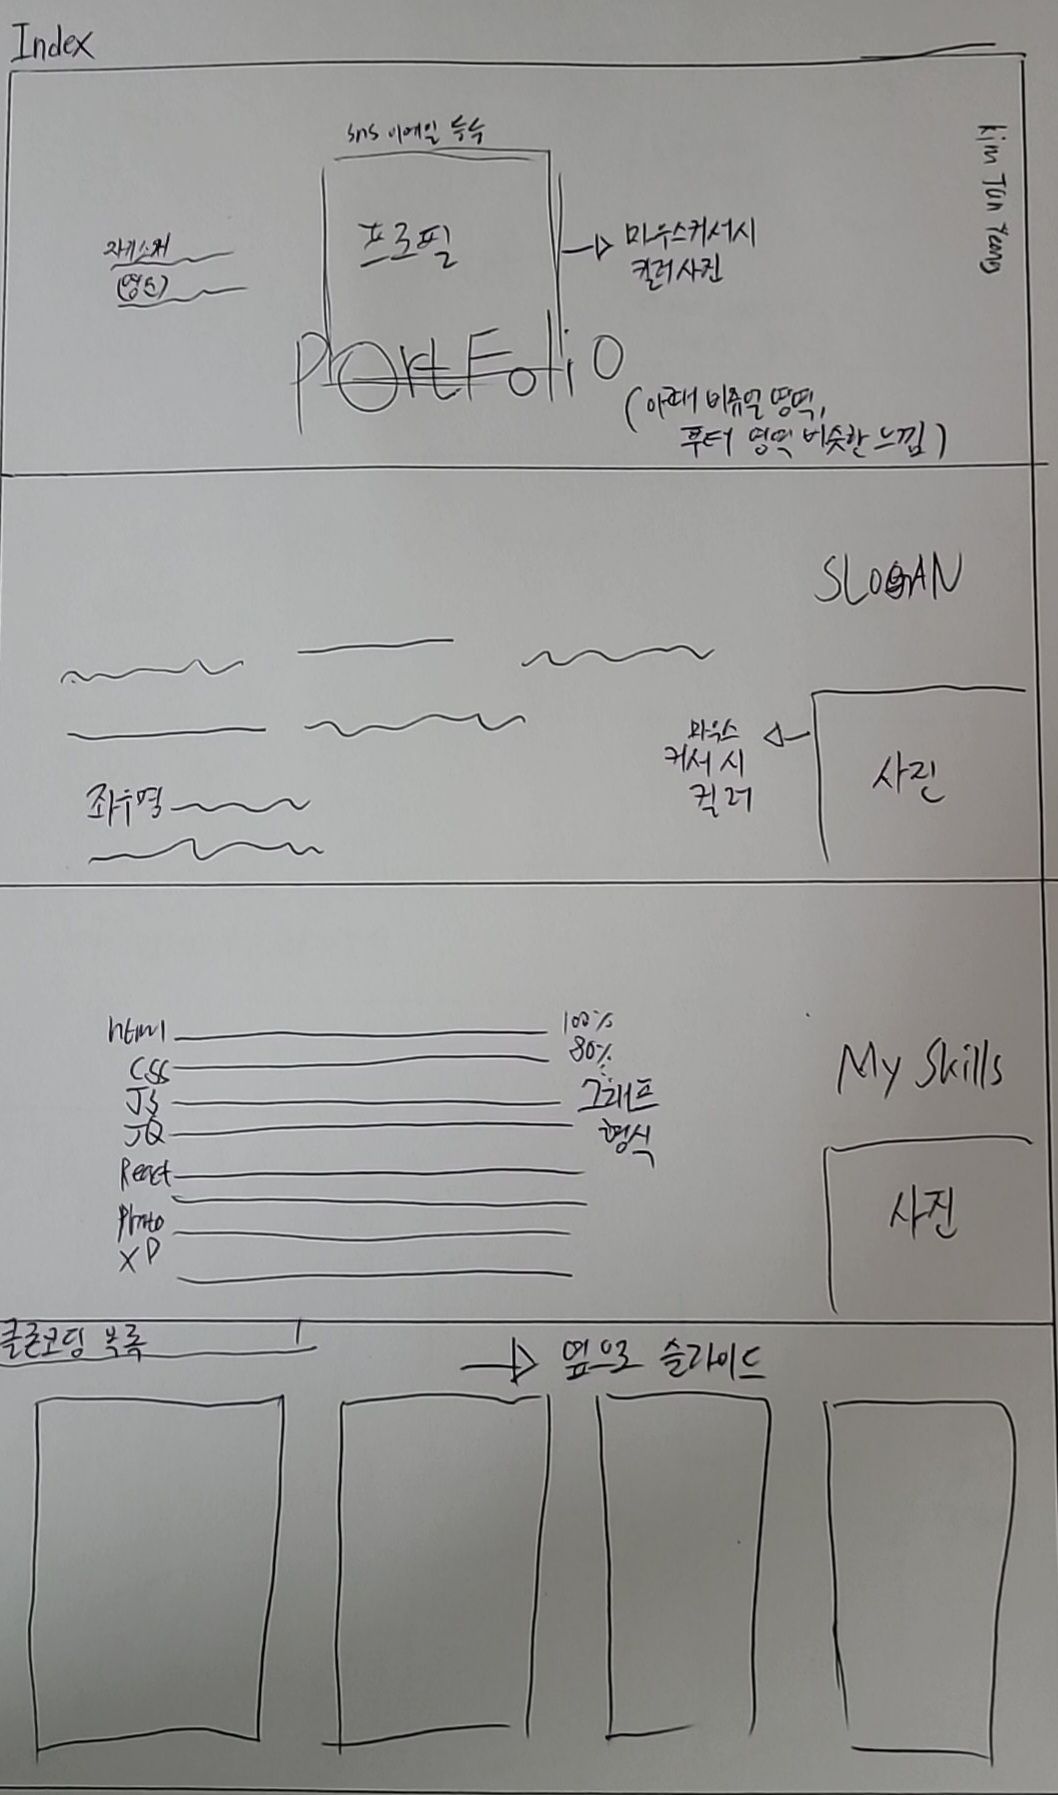 Index
sns 이메일 등등
Kim Jun Yeong
자기소개
(영문)
프로필
마우스커서시
컬러사진
PortFolio
(아래 비쥬얼 영역,
푸터 영역 비슷한 느낌)
SLOGAN
마우스
커서 시
컬러
사진
좌우명
html
100%
CSS
80%
JS
그래프
JQ
형식
React
Photo
XD
My Skills
사진
클론코딩 목록
옆으로 슬라이드